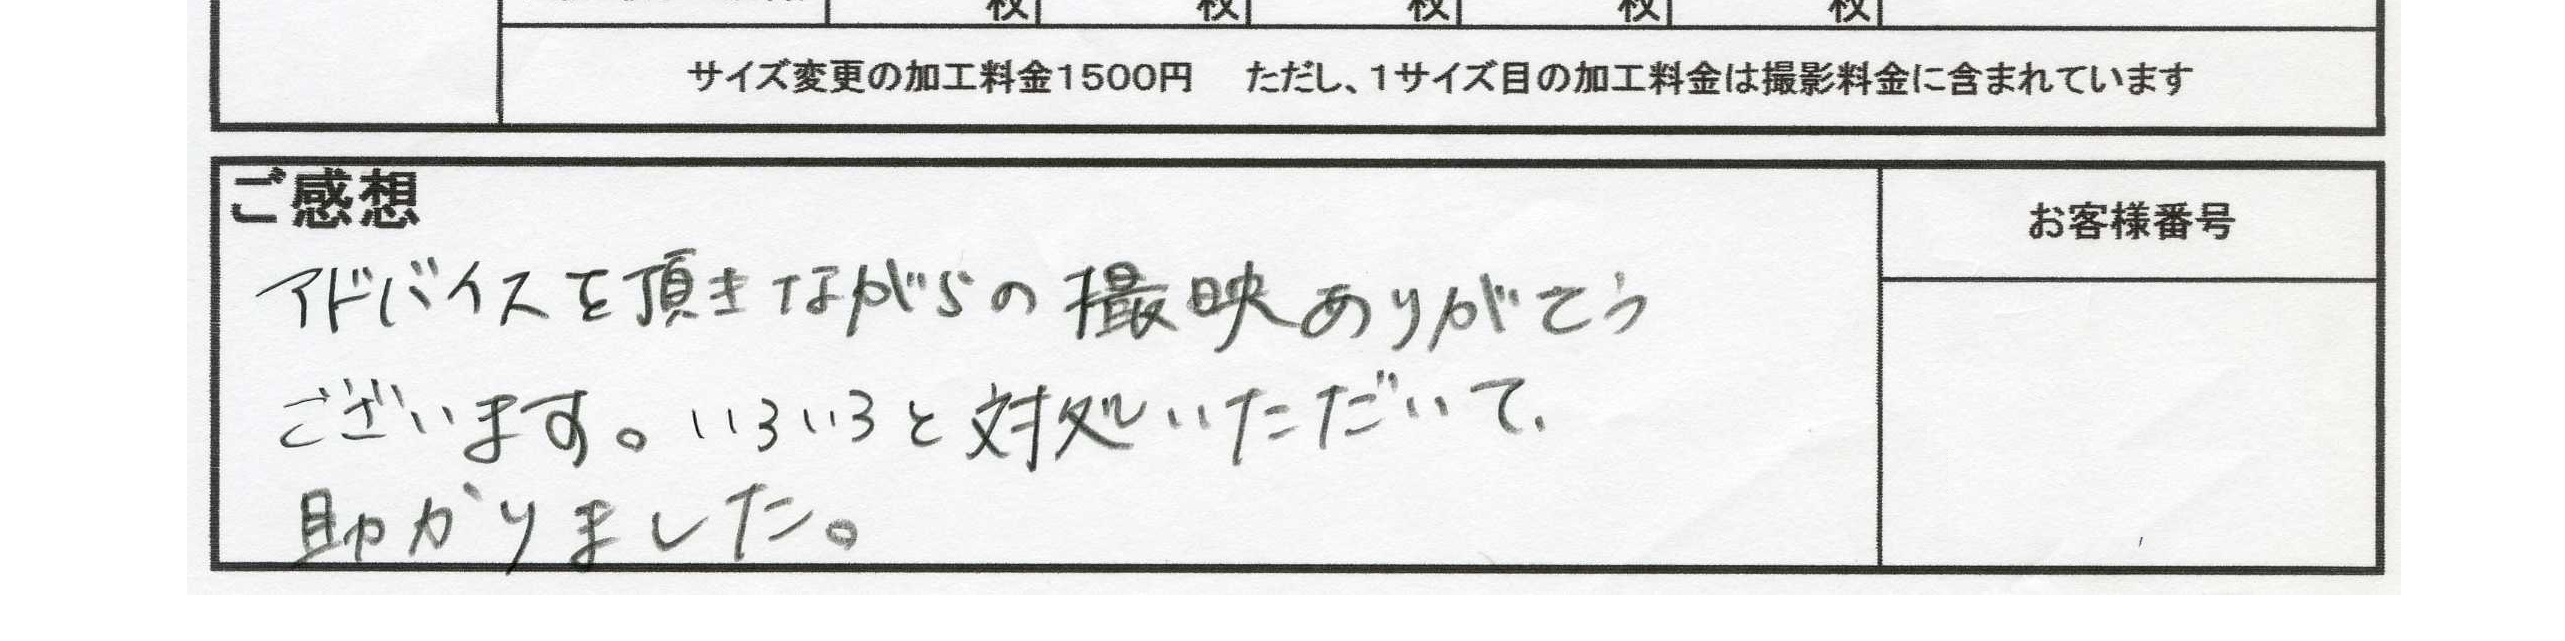 枚 枚 枚 枚 枚
サイズ変更の加工料金1500円 ただし、1サイズ目の加工料金は撮影料金に含まれています
ご感想
お客様番号
アドバイスを頂きながらの撮映ありがとう
ございます。いろいろと対処いただいて、
助かりました。